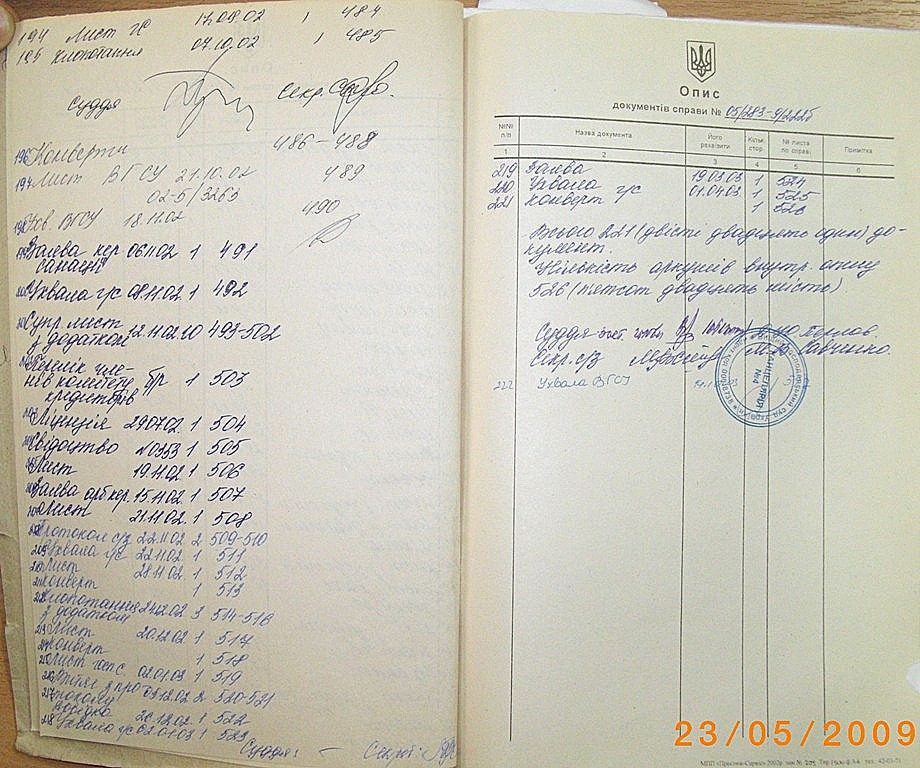 194 Лист ГС 17.09.02 1 484
195 Клопотання 07.10.02 1 485
Суддя Секр.
196 Конверти 486-488
197 Лист ВГСУ 21.10.02 489
02-5/3263
198 Ухв. ВГСУ 18.11.02 490
199 Заява кер. 06.11.02 1 491
санації
200 Ухвала г/с 08.11.02 1 492
201 Супр. лист
з додатком 12.11.02 10 493-502
202 Перелік чле-
нів комітету б/р 1 503
кредиторів
203 Ліцензія 290702 1 504
204 Свідоцтво №0353 1 505
205 Лист 19.11.02 1 506
206 Заява арб.кер. 15.11.02 1 507
207 Лист 21.11.02 1 508
208 Протокол с/з 22.11.02 2 509-510
209 Ухвала г/с 22.11.02 1 511
210 Лист 28.11.02 1 512
211 Конверт 1 513
212 Клопотання 24.12.02 3 514-516
з додатком
213 Лист 20.12.02 1 517
214 Конверт 1 518
215 Лист госп.с. 02.01.03 1 519
216 Витяг з про 03.12.02 2 520-521
217 токолу
26.12.02 1 522
218 Ухвала г/с 02.01.03 1 523
Суддя: – Секрет.
Опис
документів справи № 05/283-9/2225
№№ п/п Назва документа Його реквізити Кільк. стор. № листа по справі Примітка
1 2 3 4 5 6
219 Заява 19.03.03 1 524
220 Ухвала г/с 01.04.03 1 525
221 Конверт 1 526
Всього 221 (двісті двадцять один) до-
кумент.
Кількість аркушів внутр. опису
526 (п'ятсот двадцять шість)
Суддя
Секр. с/з
222 Ухвала ВГСУ
КАНЦЕЛЯРІЯ №4
23/05/2009